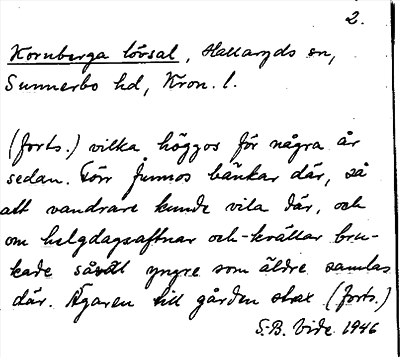 2.
Kornberga lövsal, Hallaryds sn,
Sunnerbo hd, Kron. l.
(forts.) vilka höggos för några år
sedan. Förr funnos bänkar där, så
att vandrare kunde vila där, och
om helgdagsaftnar och -kvällar bru-
kade såväl yngre som äldre samlas
där. Ägaren till gården strax (forts.)
S.B. Vide 1946